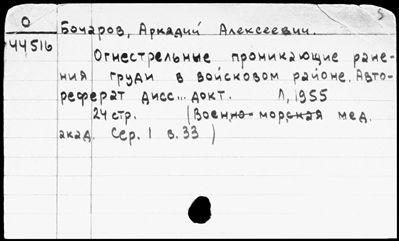 5
О
44516
Бочаров, Аркадий Алексеевич.
Огнестрельные проникающие ране-
ния груди в войсковом районе. Авто-
реферат дисс... докт. Л, 1955
24 стр. (Военно-морская мед.
акад. Сер. 1 в. 33 )